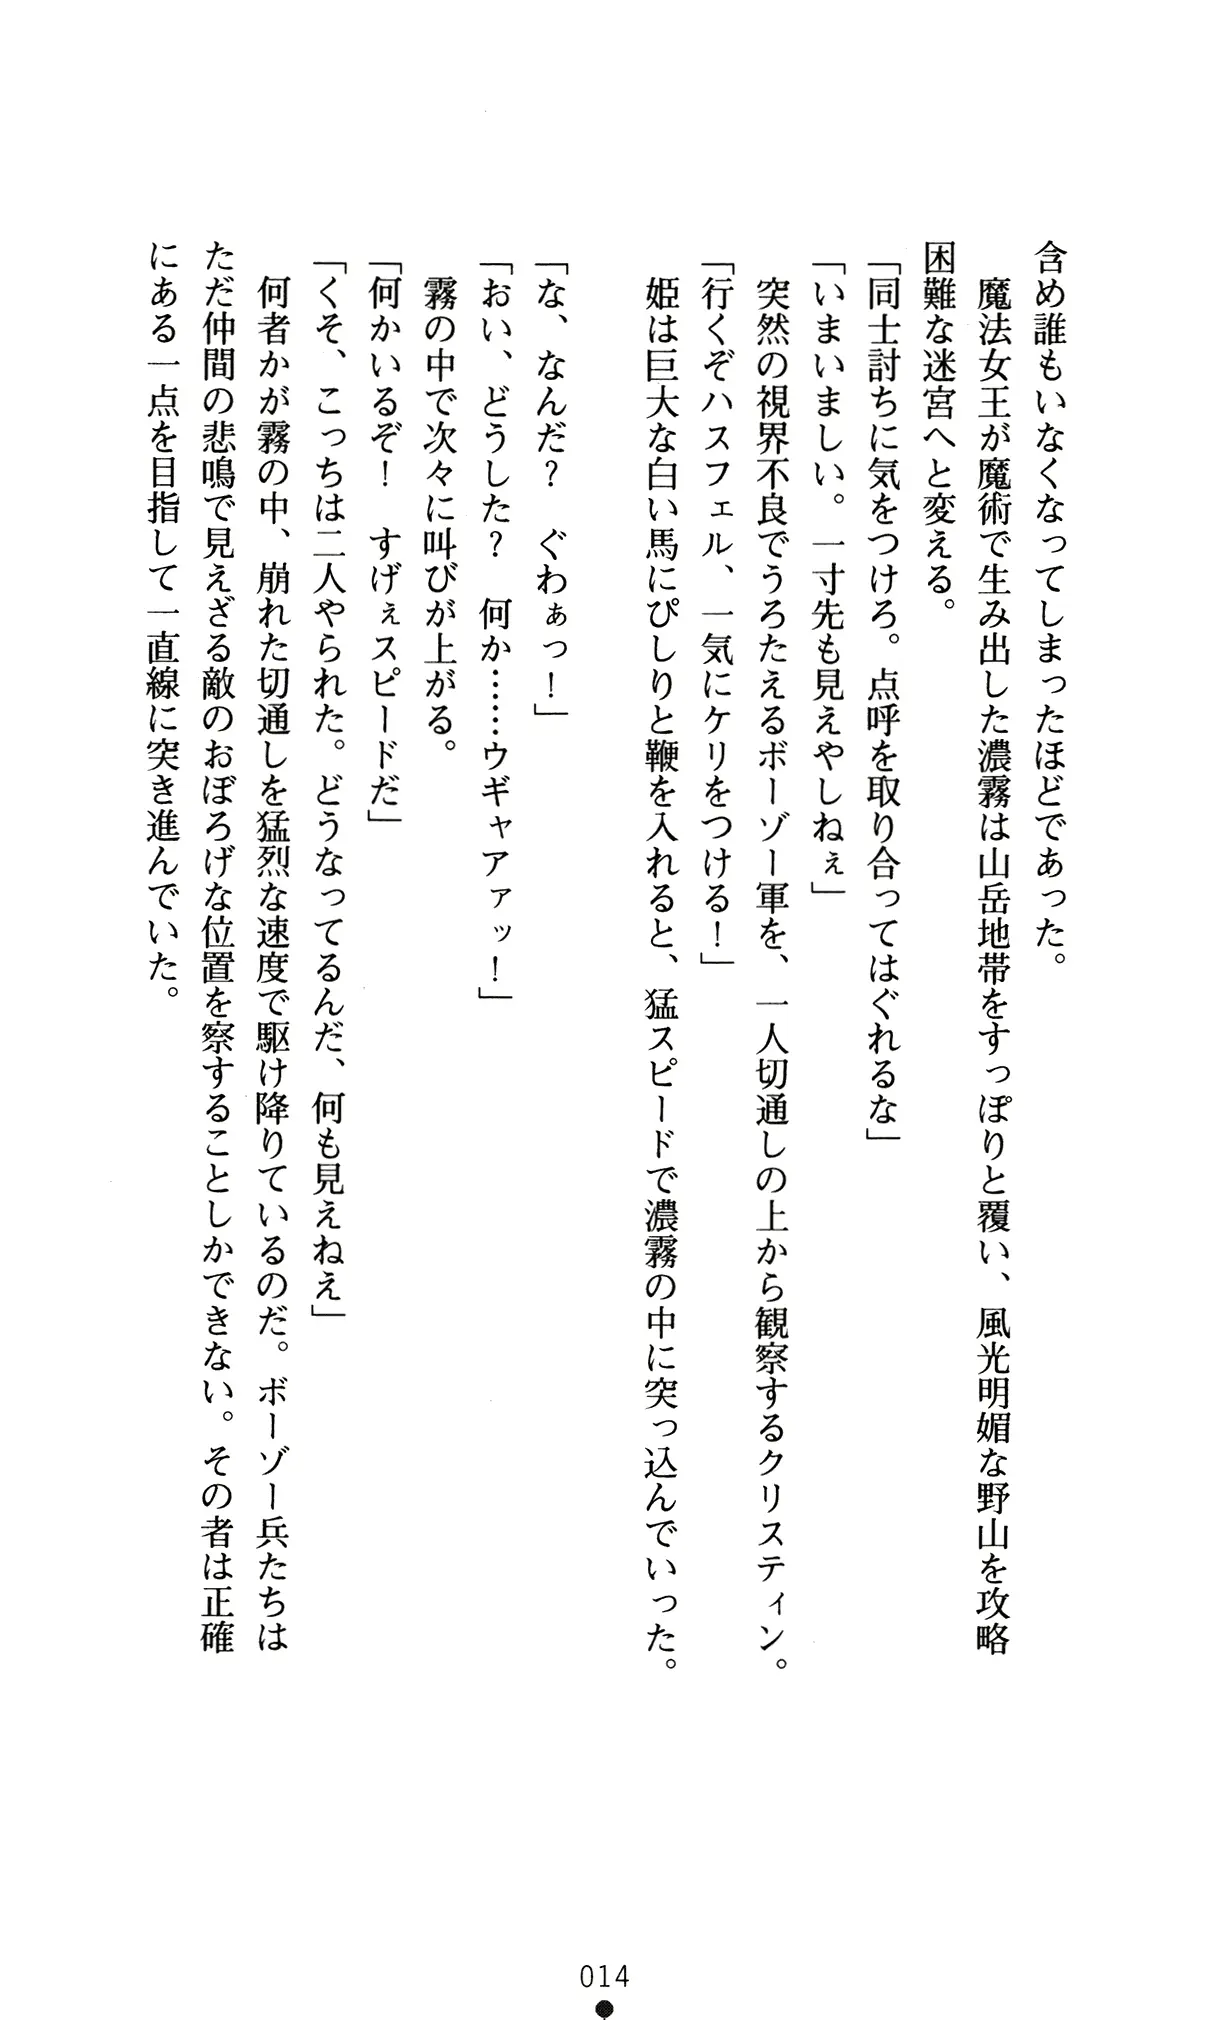 含め誰もいなくなってしまったほどであった。
　魔法女王が魔術で生み出した濃霧は山岳地帯をすっぽりと覆い、風光明媚な野山を攻略
困難な迷宮へと変える。
「同士討ちに気をつけろ。点呼を取り合ってはぐれるな」
「いまいましい。一寸先も見えやしねぇ」
　突然の視界不良でうろたえるボーゾー軍を、一人切通しの上から観察するクリスティン。
「行くぞハスフェル、一気にケリをつける！」
　姫は巨大な白い馬にぴしりと鞭を入れると、猛スピードで濃霧の中に突っ込んでいった。
「な、なんだ？　ぐわぁっ！」
「おい、どうした？　何か……ウギャアァッ！」
　霧の中で次々に叫びが上がる。
「何かいるぞ！　すげぇスピードだ」
「くそ、こっちは二人やられた。どうなってるんだ、何も見えねえ」
　何者かが霧の中、崩れた切通しを猛烈な速度で駆け降りているのだ。ボーゾー兵たちは
ただ仲間の悲鳴で見えざる敵のおぼろげな位置を察することしかできない。その者は正確
にある一点を目指して一直線に突き進んでいた。
014